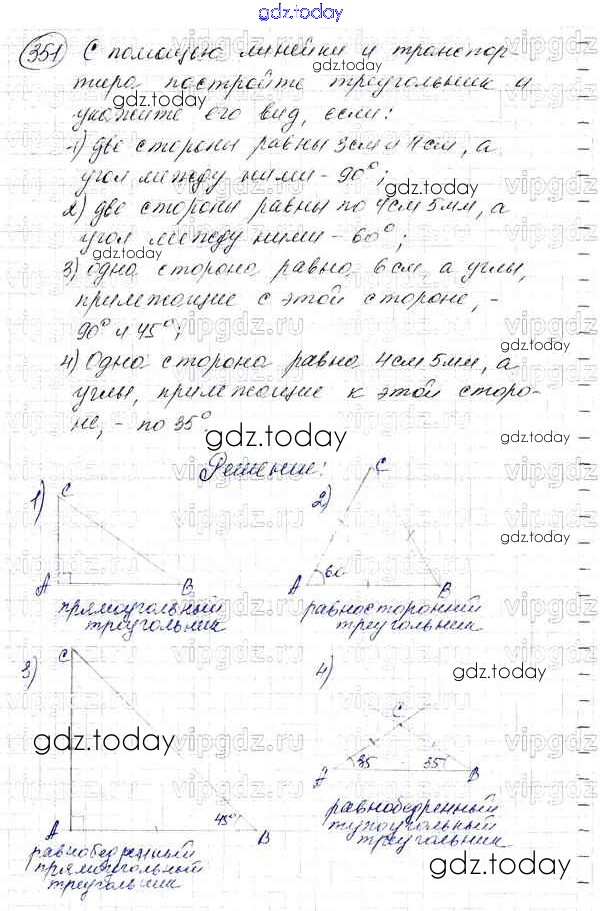 gdz.today
351 С помощью линейки и транспор-
тира постройте треугольник и
gdz.today
укажите его вид, если:
1) две стороны равны 3см и 4см, а
угол между ними - 90°;
gdz.today
2) две стороны равны по 4см 5мм, а
угол между ними - 60°;
3) одна сторона равна 6см, а углы,
gdz.today
прилежащие с этой стороне, -
90° и 45°;
4) Одна сторона равна 4см 5мм, а
углы, прилежащие к этой сторо-
не, - по 35°.
gdz.today
gdz.today
Решение:
1) C
A B
прямоугольный
треугольник
gdz.today
2) C
A 60 B
равносторонний
треугольник
gdz.today
3) C
gdz.today
A 45° B
равнобедренный
прямоугольный
треугольник
gdz.today
4) C
A 35 35 B
равнобедренный
тупоугольный
треугольник
vipgdz.ru